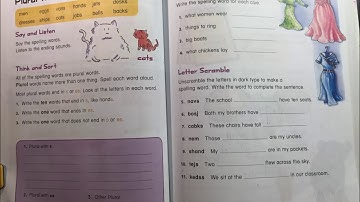 Plural
men eggs vans hands jets desks
dresses ships cats jobs bells backs
Say and Listen
Say the spelling words.
Listen to the ending sounds.
cats
Think and Sort
All of the spelling words are plural words.
Plural words name more than one thing. Spell each word aloud.
Most plural words end in s or es. Look at the letters in each word.
1. Write the ten words that end in s, like hands.
2. Write the one word that ends in es.
3. Write the one word that does not end in s or es.
1. Plural with s
2. Plural with es
3. Other Plural
Write the spelling word for each clue.
1. what women wear
2. things to ring
3. big boats
4. what chickens lay
Letter Scramble
Unscramble the letters in dark type to make a
spelling word. Write the word to complete the sentence.
5. navs The school have ten seats.
6. bosj Both my brothers have
7. cabks These chairs have tall
8. nem Those are my uncles.
9. shand My are in my pockets.
10. tejs Two flew across the sky.
11. kedss We sit at the in our classroom.